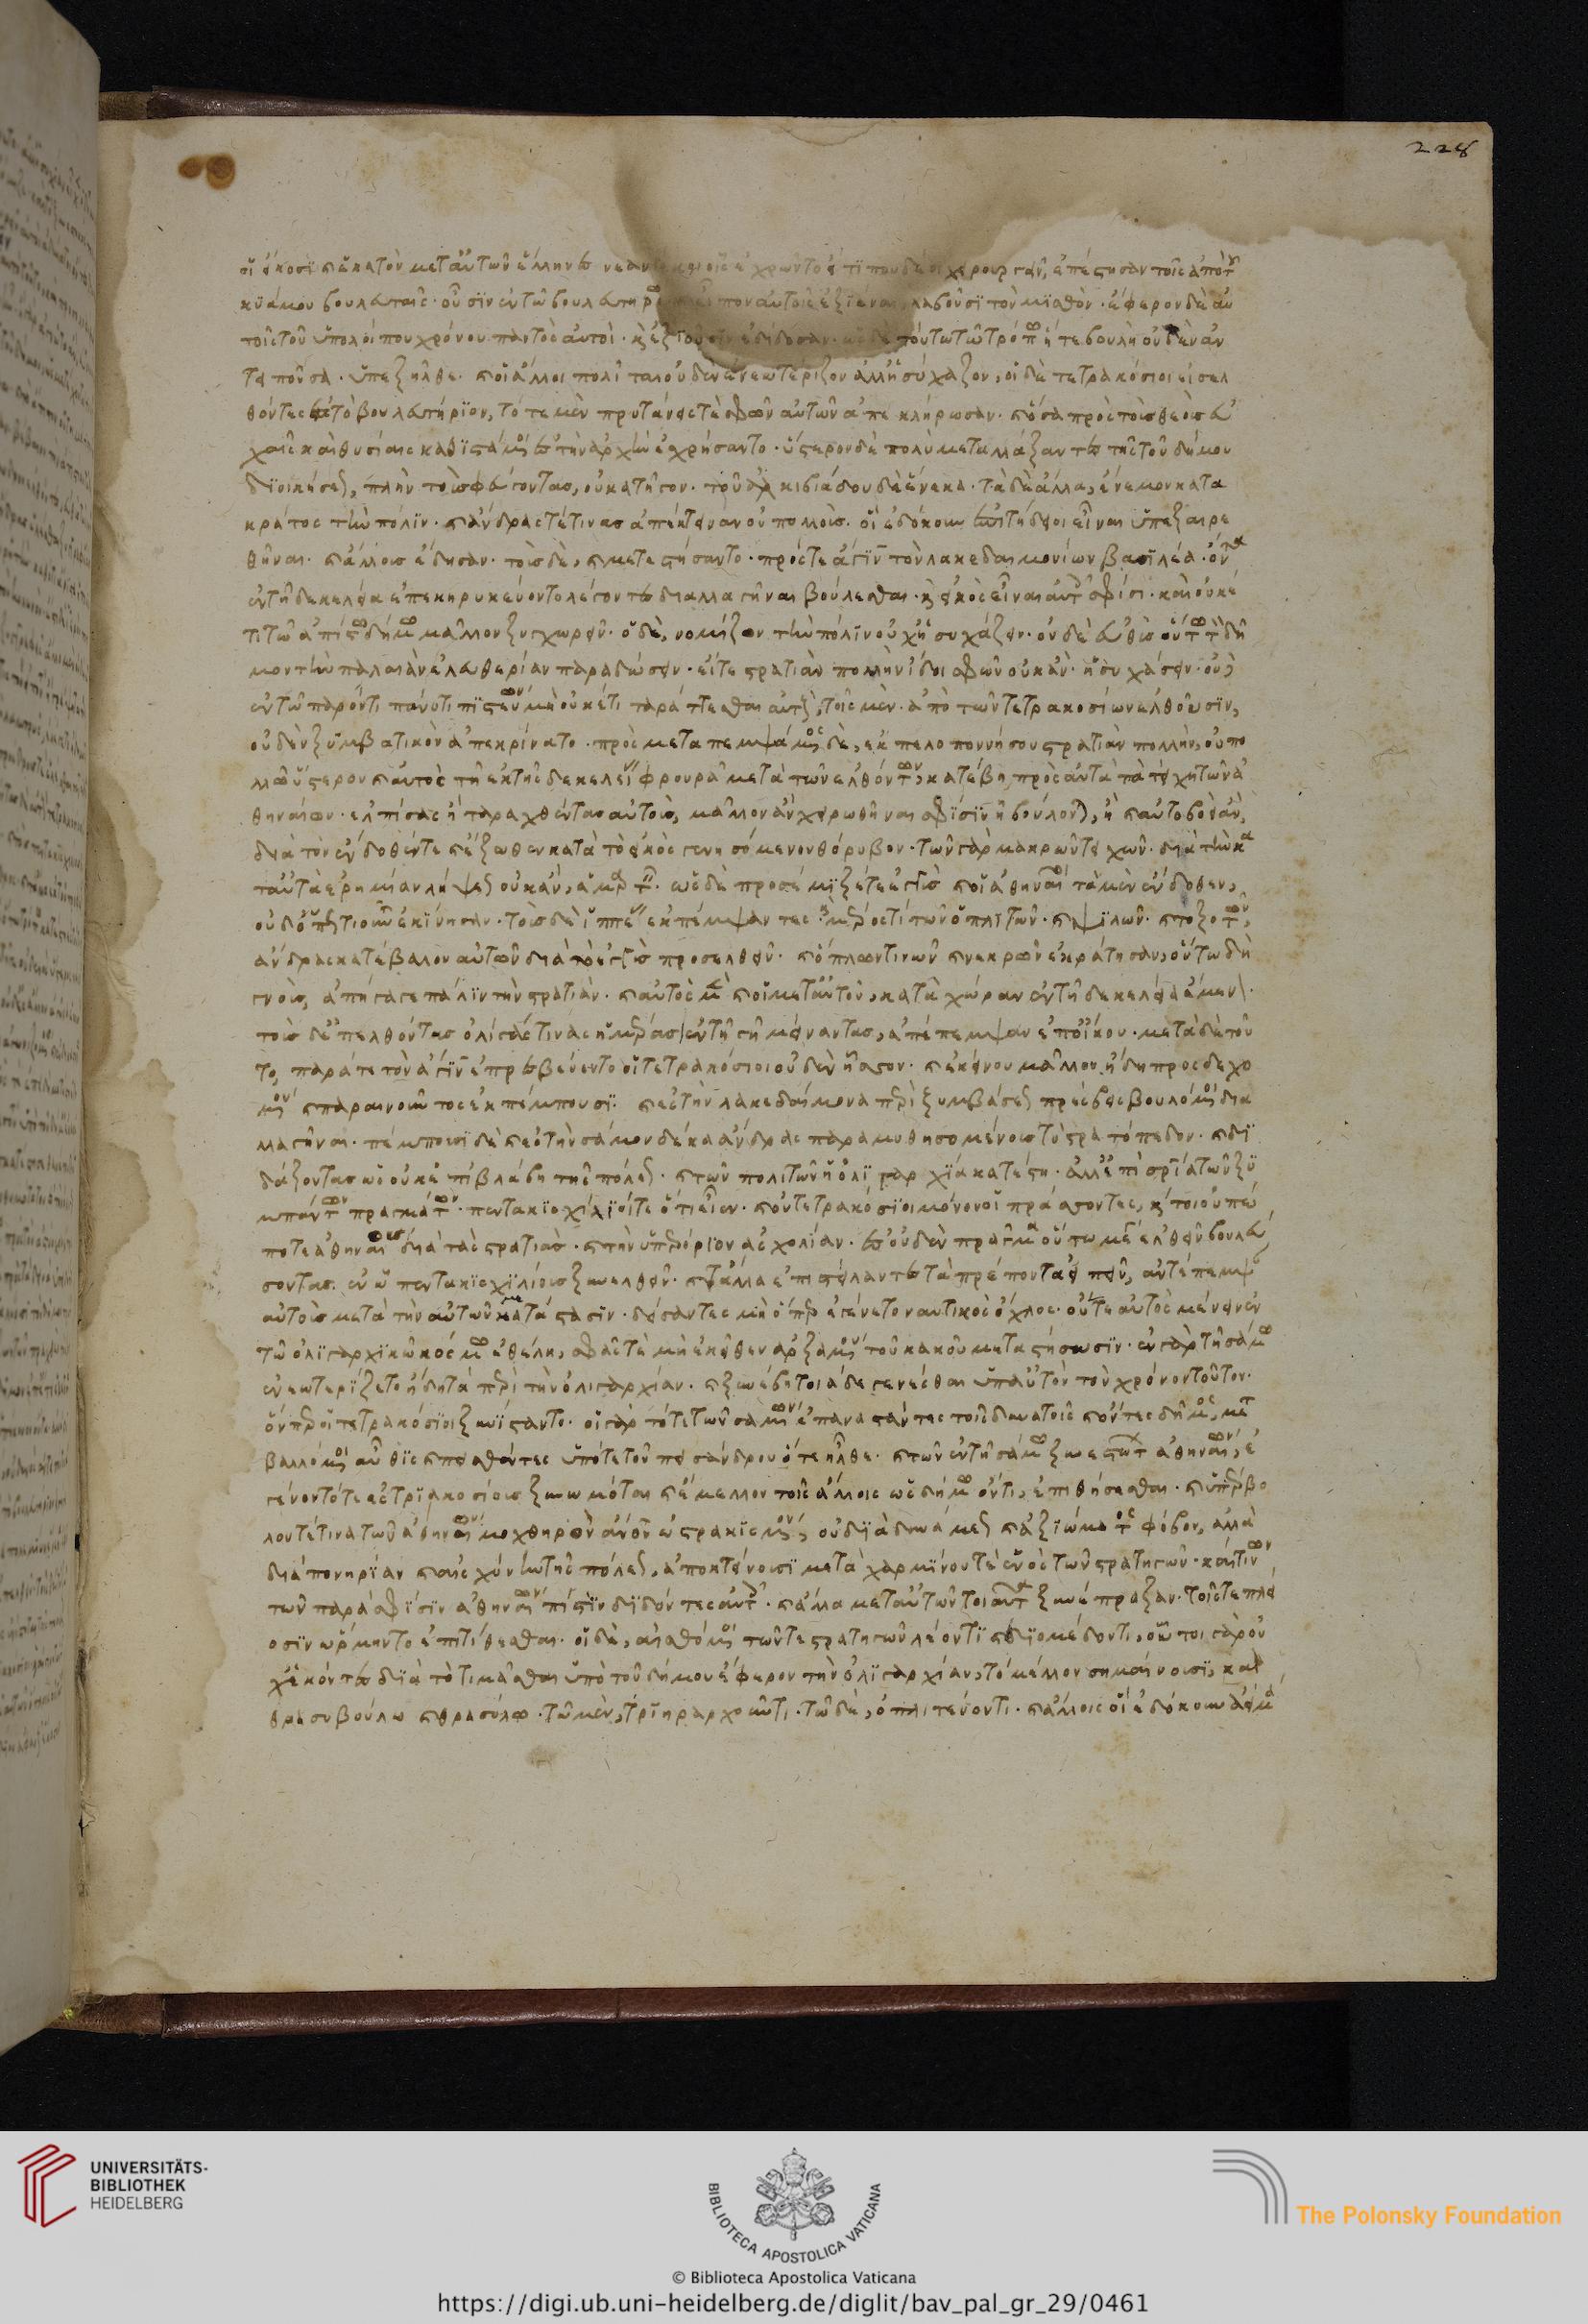 οἱ εἴκοσι καὶ ἑκατὸν μετ' αὐτῶν ἕλληνες νεανίσκοι οἷς ἐχρῶντο εἴ τί που δέοι χειρουργεῖν, ἐπέστησαν τοῖς ἀπὸ τοῦ
κυάμου βουλευταῖς· οὖσιν ἐν τῷ βουλευτηρίῳ καὶ εἶπον αὐτοῖς ἐξιέναι λαβοῦσι τὸν μισθόν· ἔφερον δὲ αὐ
τοῖς τοῦ ὑπολοίπου χρόνου παντὸς αὐτοὶ· καὶ ἐξιοῦσιν ἐδίδοσαν. ὡς δὲ τούτῳ τῷ τρόπῳ ἥ τε βουλὴ οὐδὲν ἀν
τειποῦσα· ὑπεξῆλθε· καὶ οἱ ἄλλοι πολῖται οὐδὲν ἐνεωτέριζον ἀλλ' ἡσύχαζον, οἱ δὲ τετρακόσιοι εἰσελ
θόντες ἐς τὸ βουλευτήριον, τότε μὲν πρυτάνεις τε σφῶν αὐτῶν ἀπεκλήρωσαν· καὶ ὅσα πρὸς τοὺς θεοὺς εὐ
χαῖς καὶ θυσίαις καθιστάμενοι ἐς τὴν ἀρχὴν ἐχρήσαντο· ὕστερον δὲ πολὺ μεταλλάξαντες τῆς τοῦ δήμου
διοικήσεως, πλὴν τοὺς φεύγοντας, οὐ κατῆγον· τοῦ ἀλκιβιάδου δὲ ἕνεκα· τὰ δὲ ἄλλα, ἔνεμον κατὰ
κράτος τὴν πόλιν· καὶ ἄνδρας τέ τινας ἀπέκτειναν οὐ πολλοὺς· οἳ ἐδόκουν ἐπιτήδειοι εἶναι ὑπεξαιρε
θῆναι· καὶ ἄλλους ἔδησαν· τοὺς δὲ, καὶ μετεστήσαντο· πρός τε ἆγιν τὸν λακεδαιμονίων βασιλέα· ὄντα
ἐν τῇ δεκελείᾳ ἐπεκηρυκεύοντο λέγοντες διαλλαγῆναι βούλεσθαι· καὶ εἰκὸς εἶναι αὐτὸν σφίσι· καὶ οὐκέ
τι τῷ ἀπίστῳ δήμῳ μᾶλλον ξυγχωρεῖν· ὁ δὲ, νομίζων τὴν πόλιν οὐχ ἡσυχάζειν· οὐδὲ εὐθὺς οὕτω τὸν δῆ
μον τὴν παλαιὰν ἐλευθερίαν παραδώσειν· εἴ τε στρατιὰν πολλὴν ἴδοι σφῶν οὐκ ἂν· ἡσυχάσειν· οὐδ'
ἐν τῷ παρόντι πάνυ τι πιστεύων μὴ οὐκέτι ταράττεσθαι αὐτοὺς, τοῖς μὲν· ἀπὸ τῶν τετρακοσίων ἐλθοῦσιν,
οὐδὲν ξυμβατικὸν ἀπεκρίνατο· προσμεταπεμψάμενος δὲ, ἐκ πελοποννήσου στρατιὰν πολλὴν, οὐ πο
λλῷ ὕστερον καὶ αὐτὸς τῇ ἐκ τῆς δεκελείας φρουρᾷ μετὰ τῶν ἐλθόντων, κατέβη πρὸς αὐτὰ τὰ τείχη τῶν ἀ
θηναίων· ἐλπίσας ἢ ταραχθέντας αὐτοὺς, μᾶλλον ἂν χειρωθῆναι σφίσιν ᾗ βούλονται, ἢ καὶ αὐτοβοεὶ ἂν,
διὰ τὸν ἔνδοθέν τε καὶ ἔξωθεν κατὰ τὸ εἰκὸς γενησόμενον θόρυβον· τῶν γὰρ μακρῶν τειχῶν· διὰ τὴν κα
ταῦτα ἐρημίαν λήψεως οὐκ ἂν, ἁμαρτεῖν. ὡς δὲ προσέμιξέ τε ἐγγὺς καὶ οἱ ἀθηναῖοι τὰ μὲν ἔνδοθεν,
οὐδ' ὁπωστιοῦν ἐκίνησαν· τοὺς δὲ ἱππέας ἐκπέμψαντες καὶ μέρος τι τῶν ὁπλιτῶν· καὶ ψιλῶν· καὶ τοξοτῶν,
ἄνδρας κατέβαλον αὐτῶν διὰ τὸ ἐγγὺς προσελθεῖν· καὶ ὅπλων τινῶν καὶ νεκρῶν ἐκράτησαν, οὕτω δὴ
γνοὺς, ἀπήγαγε πάλιν τὴν στρατιάν· καὶ αὐτὸς μὲν καὶ οἱ μετ' αὐτοῦ, κατὰ χώραν ἐν τῇ δεκελείᾳ ἔμενον·
τοὺς δ' ἐπελθόντας ὀλίγας τινὰς ἡμέρας ἐν τῇ γῇ μείναντας, ἀπέπεμψαν ἐπ' οἴκου· μετὰ δὲ τοῦ
το, παρά τε τὸν ἆγιν ἐπρεσβεύοντο οἱ τετρακόσιοι οὐδὲν ἧσσον· καὶ ἐκείνου μᾶλλον ἤδη προσδεχο
μένου καὶ παραινοῦντος ἐκπέμπουσι· καὶ ἐς τὴν λακεδαίμονα περὶ ξυμβάσεως πρέσβεις βουλόμενοι δια
λλαγῆναι· πέμπουσι δὲ καὶ ἐς τὴν σάμον δέκα ἄνδρας παραμυθησομένους τὸ στρατόπεδον· καὶ δι
δάξοντας ὡς οὐκ ἐπὶ βλάβῃ τῆς πόλεως· καὶ τῶν πολιτῶν ἡ ὀλιγαρχία κατέστη· ἀλλ' ἐπὶ σωτηρίᾳ τῶν ξυ
μπάντων πραγμάτων· πεντακισχίλιοί τε ὅτι εἶεν· καὶ οὐ τετρακόσιοι μόνον οἱ πράσσοντες, καίτοι οὐ πώ
ποτε ἀθηναίους διὰ τὰς στρατιὰς· καὶ τὴν ὑπερόριον ἀσχολίαν· ἐς οὐδὲν πρᾶγμα οὕτω μέγα ἐλθεῖν βουλεύ
σοντας· ἐν ᾧ πεντακισχιλίους ξυνελθεῖν· καὶ τἄλλα ἐπιστείλαντες τὰ πρέποντα εἰπεῖν, ἀντέπεμψαν
αὐτοὺς μετὰ τὴν αὐτῶν κατάστασιν· δείσαντες μὴ ὅπερ ἐγένετο ναυτικὸς ὄχλος· οὔτε αὐτὸς μένειν ἐν
τῷ ὀλιγαρχικῷ κόσμῳ ἐθέλῃ, σφᾶς τε μὴ ἐκεῖθεν ἀρξαμένου τοῦ κακοῦ μεταστήσωσιν· ἐν γὰρ τῇ σάμῳ
ἐνεωτερίζετο ἤδη τὰ περὶ τὴν ὀλιγαρχίαν· καὶ ξυνέβη τοιάδε γενέσθαι ὑπ' αὐτὸν τὸν χρόνον τοῦτον·
ὅνπερ οἱ τετρακόσιοι ξυνίσταντο· οἱ γὰρ τότε τῶν σαμίων ἐπαναστάντες τοῖς δυνατοῖς καὶ ὄντες δῆμος, μετα
βαλλόμενοι αὖθις καὶ πεισθέντες ὑπό τε τοῦ πεισάνδρου ὅτε ἦλθε· καὶ τῶν ἐν τῇ σάμῳ ξυνεστώτων ἀθηναίων, ἐ
γένοντό τε ἐς τριακοσίους ξυνωμόται καὶ ἔμελλον τοῖς ἄλλοις ὡς δήμῳ ὄντι, ἐπιθήσεσθαι· καὶ ὑπέρβο
λόν τέ τινα τῶν ἀθηναίων μοχθηρὸν ἄνθρωπον ὠστρακισμένον, οὐ διὰ δυνάμεως καὶ ἀξιώματος φόβον, ἀλλὰ
διὰ πονηρίαν καὶ αἰσχύνην τῆς πόλεως, ἀποκτείνουσι μετὰ χαρμίνου τε ἑνὸς τῶν στρατηγῶν· καί τινων
τῶν παρὰ σφίσιν ἀθηναίων πίστιν διδόντες αὐτοῖς· καὶ ἄλλα μετ' αὐτῶν τοιαῦτα ξυνέπραξαν· τοῖς τε πλεί
οσιν ὥρμηντο ἐπιτίθεσθαι· οἱ δὲ, αἰσθόμενοι τῶν τε στρατηγῶν λέοντι καὶ διομέδοντι, οὗτοι γὰρ οὐ
χ ἑκόντες διὰ τὸ τιμᾶσθαι ὑπὸ τοῦ δήμου ἔφερον τὴν ὀλιγαρχίαν, τὸ μέλλον σημαίνουσι, καὶ
θρασυβούλῳ καὶ θρασύλῳ· τῷ μὲν, τριηραρχοῦντι· τῷ δὲ, ὁπλιτεύοντι· καὶ ἄλλοις οἳ ἐδόκουν ἀεὶ μά
228
UNIVERSITÄTS-
BIBLIOTHEK
HEIDELBERG
BIBLIOTECA APOSTOLICA VATICANA
© Biblioteca Apostolica Vaticana
The Polonsky Foundation
https://digi.ub.uni-heidelberg.de/diglit/bav_pal_gr_29/0461